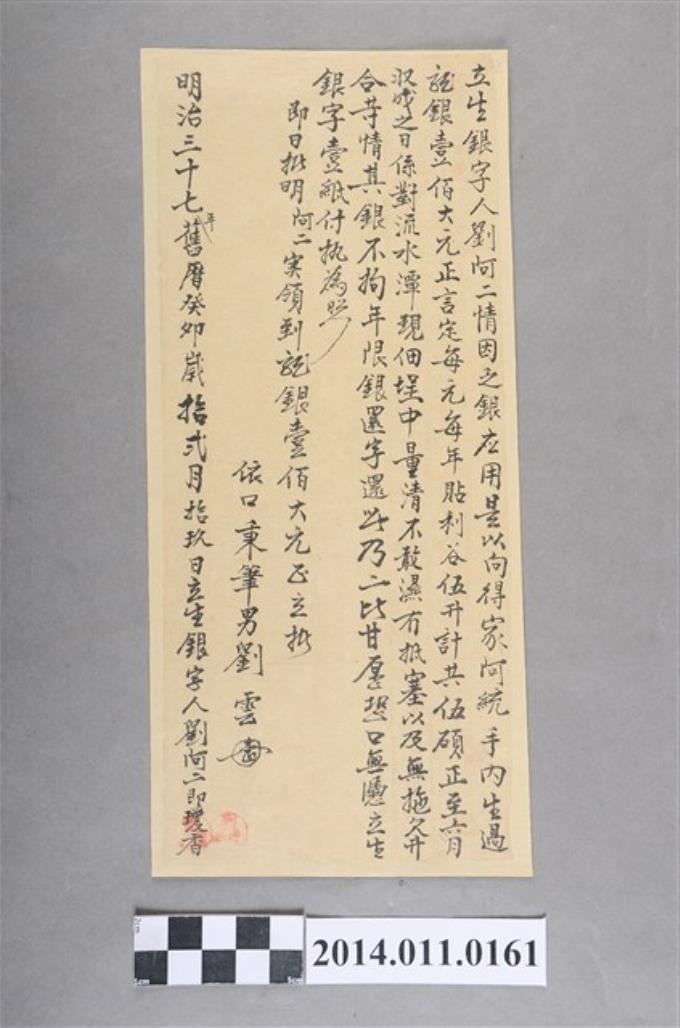 立生銀字人劉阿二情因乏銀应用是以向得家阿統手内生過
龍銀壹佰大元正言定每元每年貼利谷伍升計共伍碩正至六月
収成之日係對流水潭現佃埕中量清不敢濕冇抵塞以及無拖欠升
合等情其銀不拘年限銀還字還此乃二比甘愿恐口無憑立生
銀字壹紙付执為照
即日批明阿二実領到龍銀壹佰大元正立批
依口秉筆男劉雲
明治三十七年舊曆癸卯歲拾弍月拾玖日立生銀字人劉阿二即瓊香
2014.011.0161
5cm